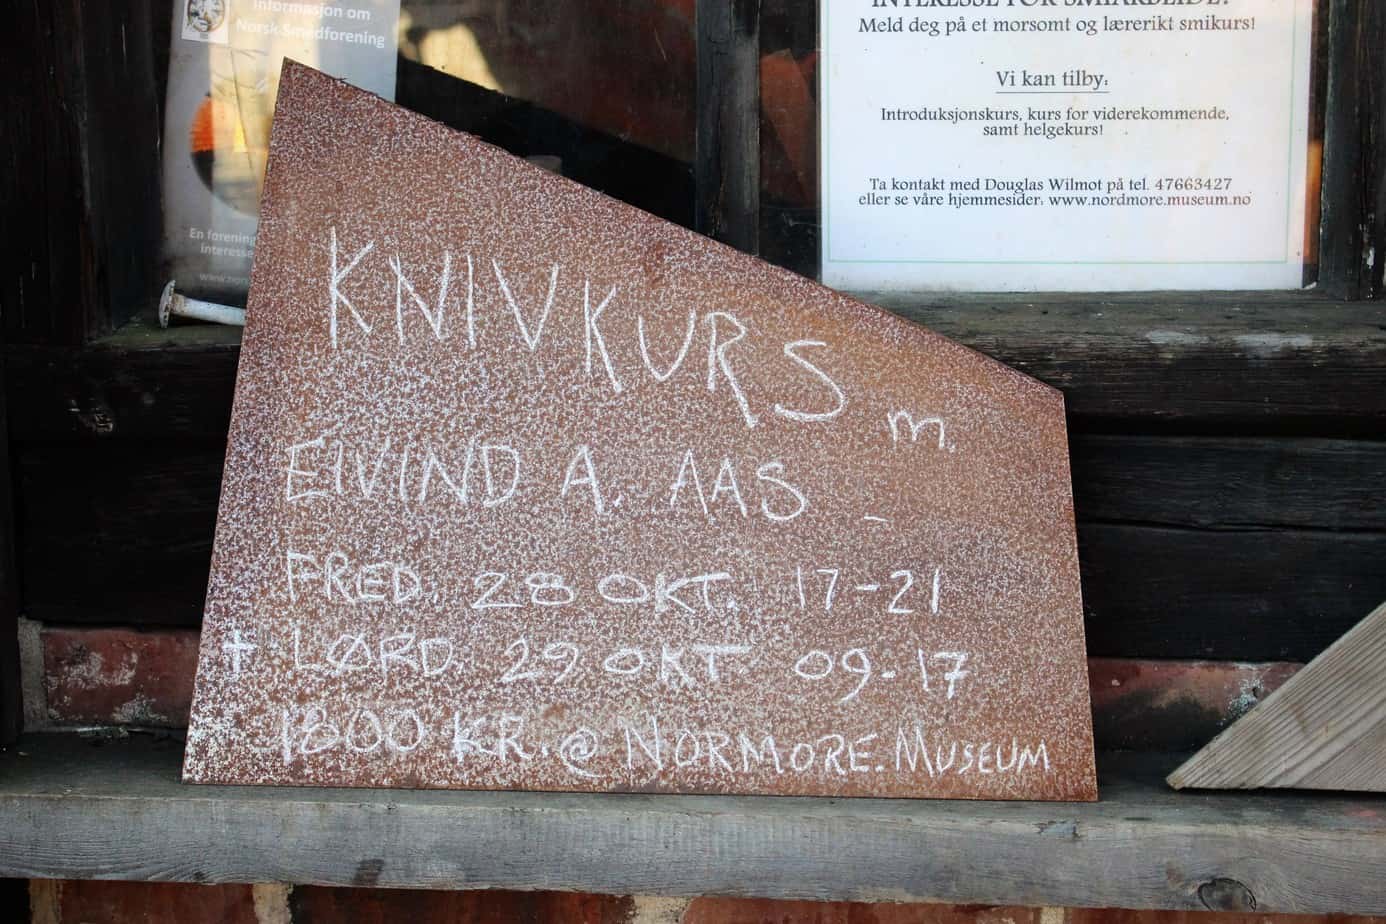 Informasjon om
Norsk Smedforening
En forening
interesse
INTERESSE FOR SMIARBEIDE?
Meld deg på et morsomt og lærerikt smikurs!
Vi kan tilby:
Introduksjonskurs, kurs for viderekommende,
samt helgekurs!
Ta kontakt med Douglas Wilmot på tel. 47663427
eller se våre hjemmesider: www.nordmore.museum.no
KNIVKURS m.
EIVIND A. AAS -
FRED. 28 OKT. 17-21
+ LØRD. 29 OKT 09-17
1800 KR. @ NORMORE.MUSEUM